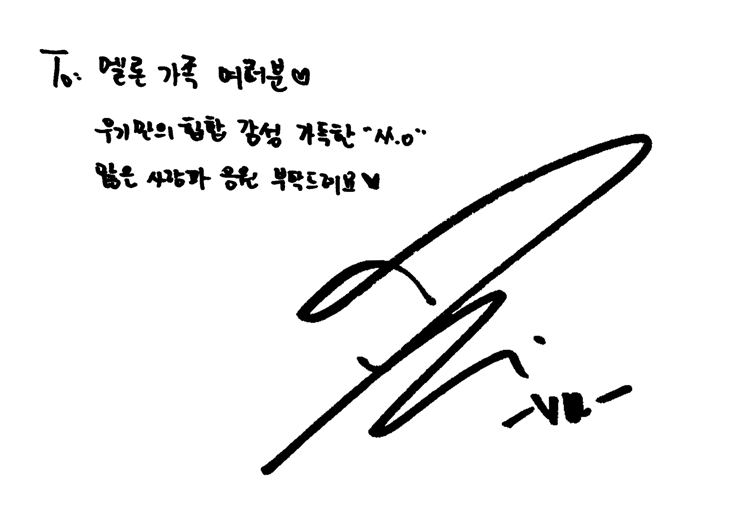 To. 멜론 가족 여러분♡
우기만의 힙합 감성 가득한 "M.O"
많은 사랑과 응원 부탁드려요♥